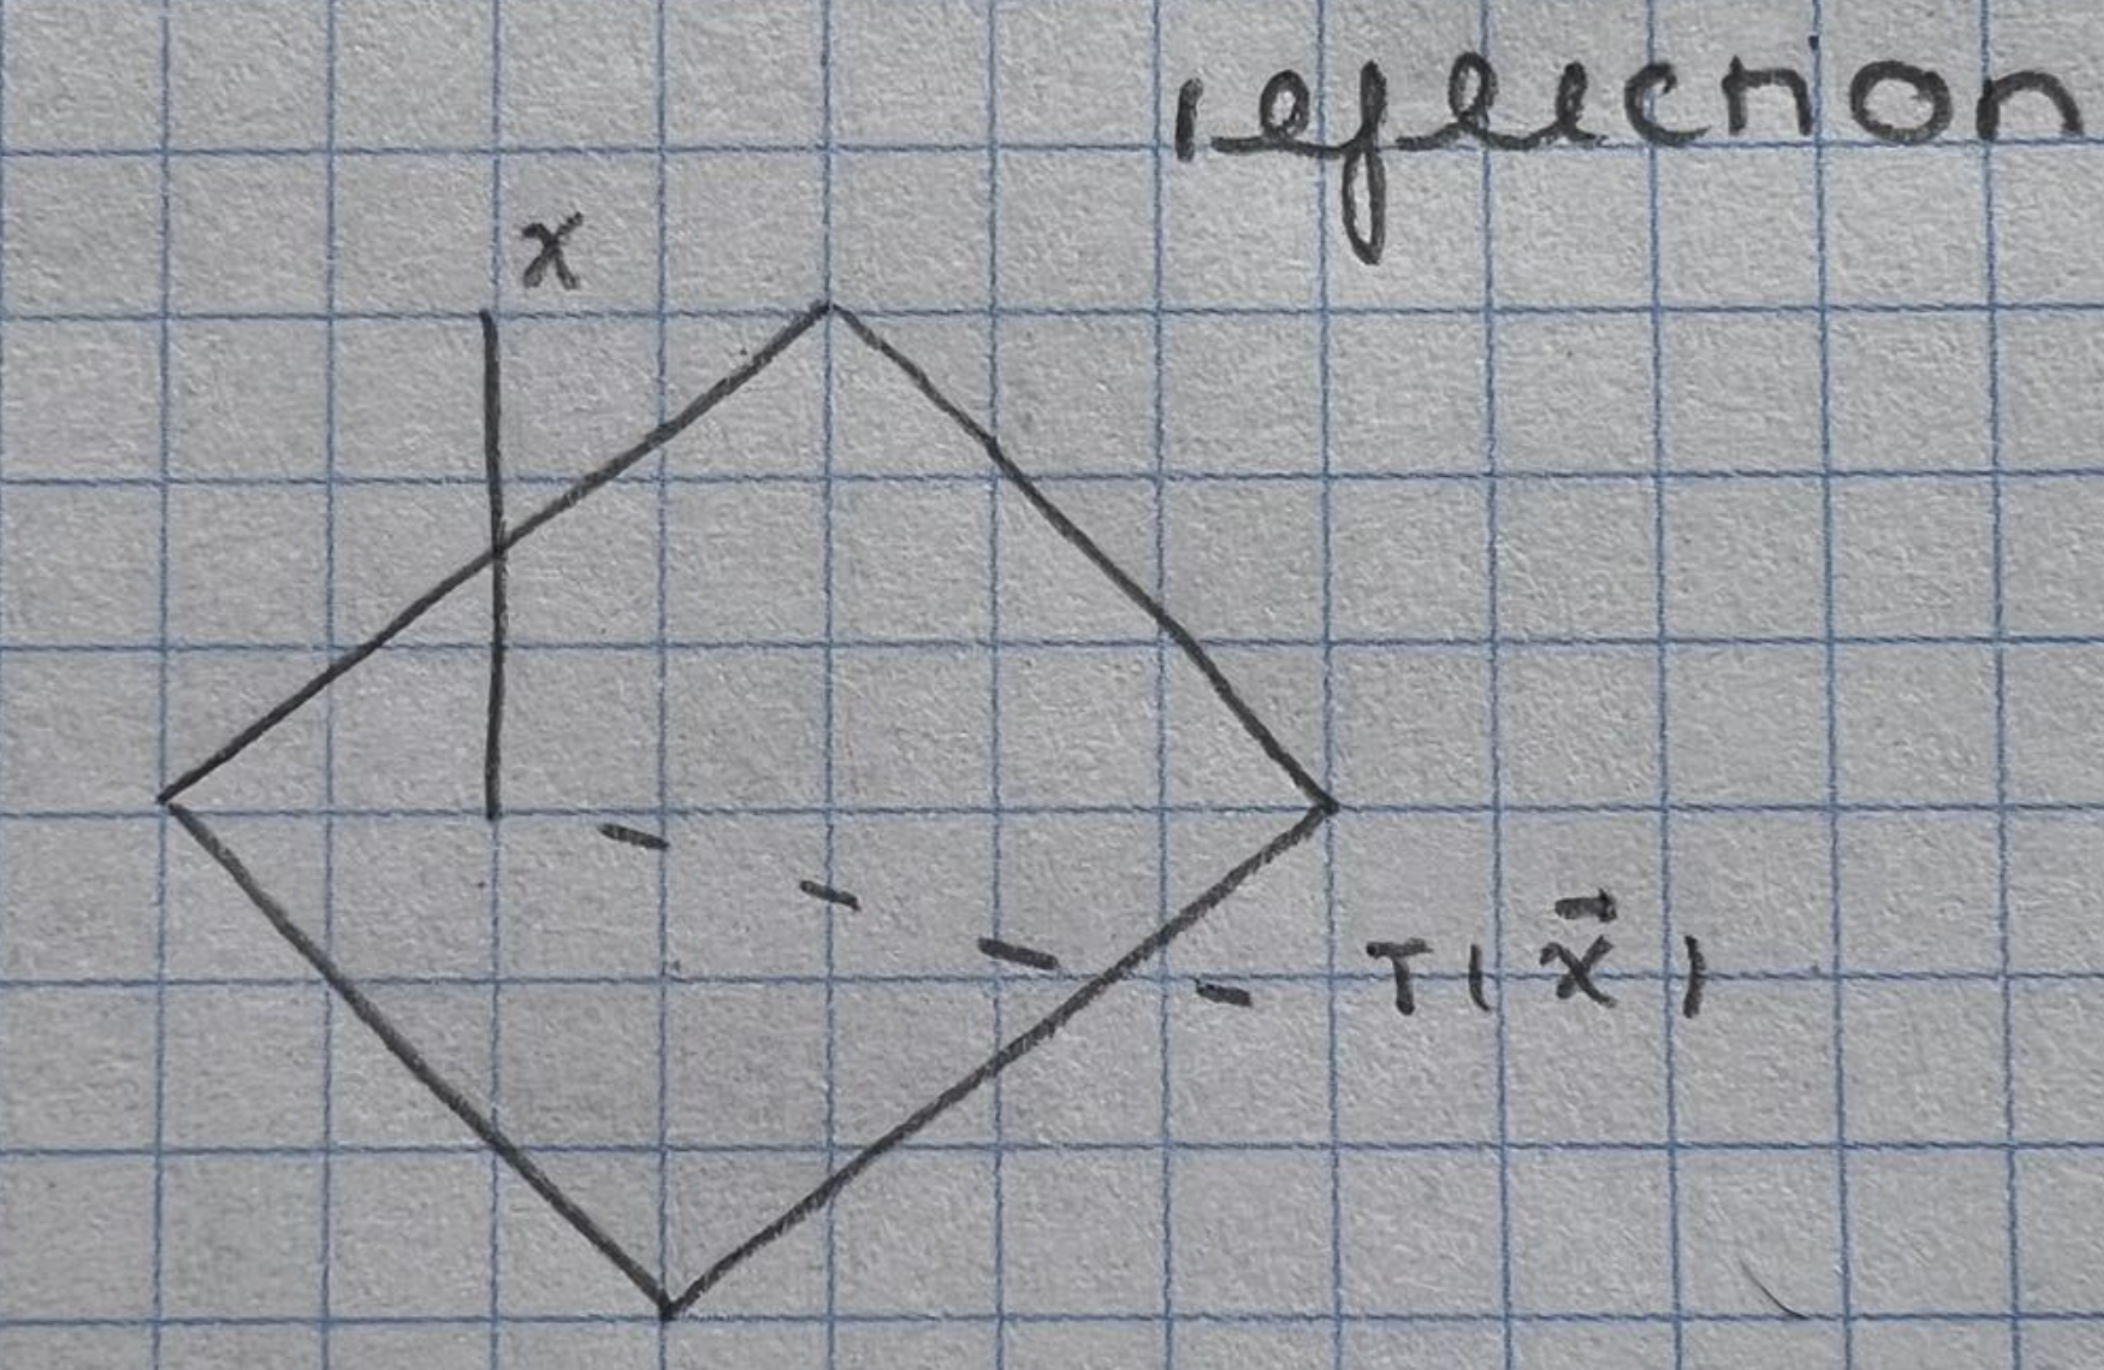 reflection
x
T( x⃗ )